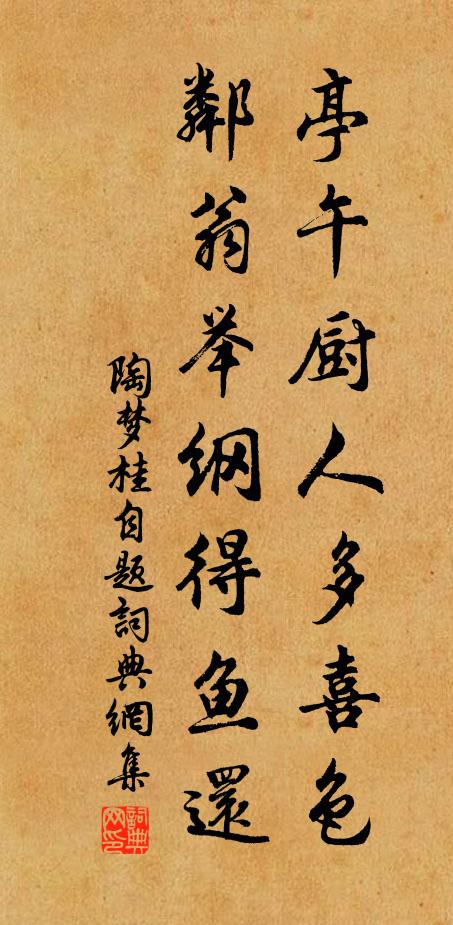 亭午厨人多喜色
鄰翁举纲得鱼還
陶梦桂自题詞典網集
詞典网印